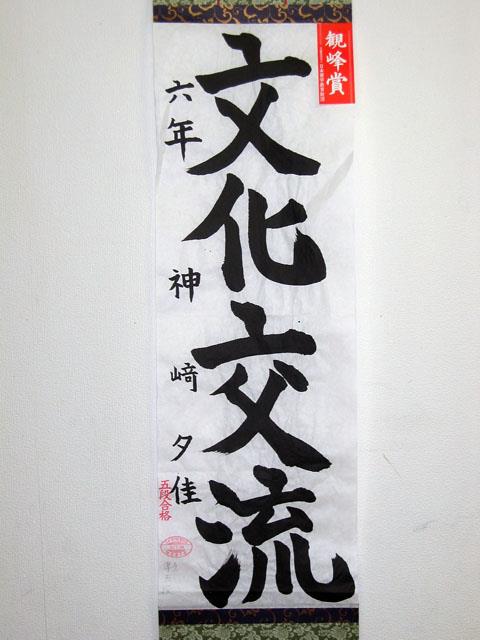 観峰賞
文化交流
六年 神﨑夕佳
五段合格